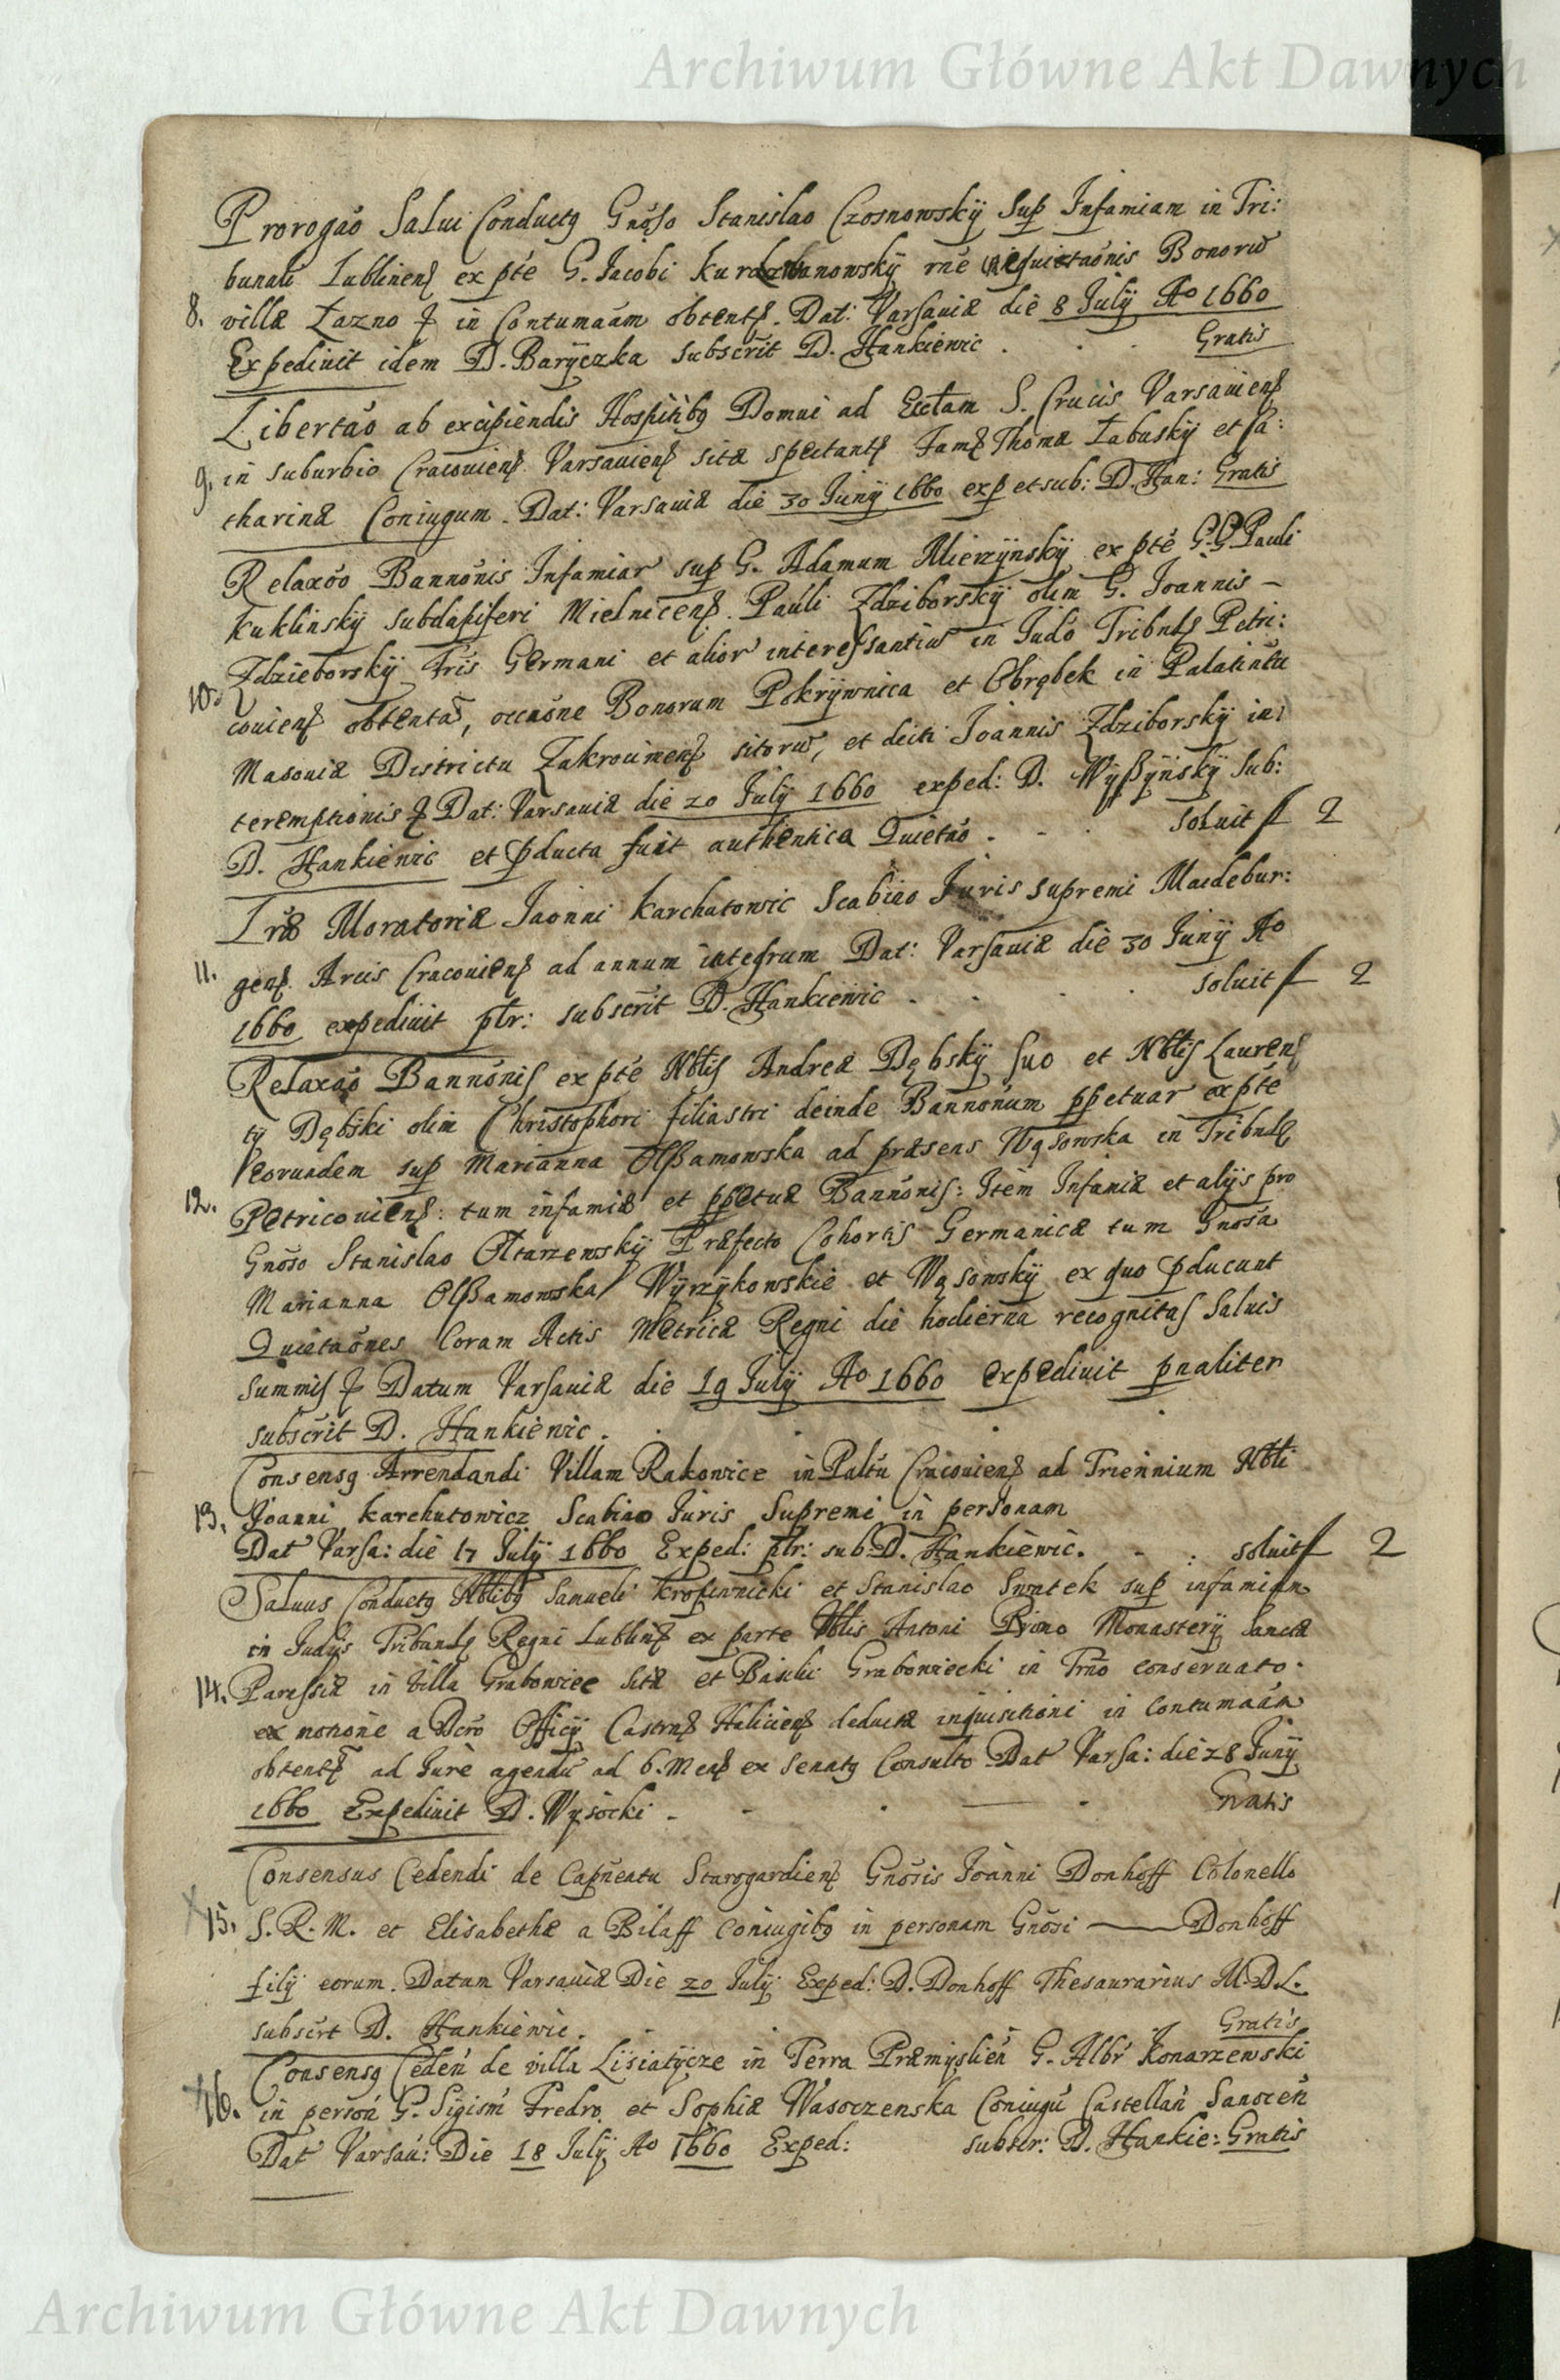 Archiwum Główne Akt Dawnych
Prorogão Salui Conductq Gnõso Stanislao Czosnowskÿ Sup Infamiam in Tri:
bunali Lublinens ex pte G. Iacobi Kurdwanowskÿ rne Bonorũ
8. villæ Łazno & in Contumaãm obtent. Dat: Varsaviæ die 8 Julÿ Ao 1660
Expediuit idem D. Barÿczka subscrit D. Hankiewic . . . Gratis
Libertão ab excipiendis Hospitibq Domui ad Ecclam S. Crucis Varsauiens
9. in suburbio Cracouiens Varsauiens sitæ spectant Fam Thomæ Łabuskÿ et Ca:
tharinæ Coniugum. Dat: Varsaviæ die 30 Junÿ 1660 exp et sub: D. Han: Gratis
Relaxão Bannõnis Infamiar sup G. Adamum Mierzÿnskÿ ex pte G.G. Pauli
Kuklinskÿ subdapiferi Mielnicens. Pauli Zdziborskÿ olim G. Ioannis –
Zdzieborskÿ Fris Germani et alior interessantiũ in Judõ Tribnls Petri:
10. couiens obtenta, occnõne Bonorum Pokrÿwnica et Obrębek in Palatinatu
Masouiæ Districtu Zakrocimens sitorũ, et dicti Joannis Zdziborskÿ in:
teremptionis & Dat: Varsauiæ die 20 Julÿ 1660 exped: D. Wÿßÿnskÿ Sub:
D. Hankiewic et pducta fuit authentica Quietão . - . soluit f 2
Lræ Moratoriæ Jaonni Karchutowic Scabino Juris supremi Maedebur:
11. gens Arcis Cracouiens ad annum integrum Dat: Varsauiæ die 30 Junÿ Ao
1660 expediuit plr: subscrit D. Hankiewic . . . . soluit f 2
Relaxão Bannõnis ex pte Nblis Andreæ Dębskÿ suo et Nblis Lauren
tÿ Dębski olim Christophori filiastri deinde Bannõnum ppetuar ex pte
eorundem sup Marianna Olßamowska ad præsens Wąsowska in Tribnl
12. Petricouiens: tum infamiæ et ppetuæ Bannõnis: Item Infamiæ et alÿs pro
Gnõso Stanislao Oltarzewskÿ Præfecto Cohortis Germanicæ tum Gnosa
Marianna Olßamowska Wÿrzÿkowskie et Wąsowskÿ ex quo pducunt
Quietaõnes Coram Actis Metricæ Regni die hodierna recognitas Saluis
summis & Datum Varsauiæ die 19 Julÿ Ao 1660 expediuit pnaliter
subscrit D. Hankiewic . . . .
Consensq Arrendandi Villam Rakowice in Paltu Cracouiens ad Triennium Nbli
13. Joanni Karchutowicz Scabino Juris Supremi in personam
Dat Varsa: die 17 Julÿ 1660 Exped: plr: sub: D. Hankiewic. - . soluit f 2
Saluus Conductq Nblibq Samueli Kropiwnicki et Stanislao Swatek sup infamiam
in Judÿs Tribunls Regni Lublins ex parte Nblis Antoni Monasterÿ Sanctæ
14. Parassiæ in villa Grabowiec sitæ et Basili Grabowiecki in Trno conseruato.
ex motione a Dcrõ Officÿ Castrens Haliciens deducta inquisitioni in contumaãm
obtent ad Jure agendũ ad 6. Mens ex Senatq Consulto Dat Varsa: die 28 Junÿ
1660 Expediuit D. Wysocki . - . — . Gratis
Consensus Cedendi de Capneatu Starogardiens Gnõsis Joanni Donhoff Colonello
15. S. R. M. et Elisabethæ a Bilaff Coniugibq in personam Gnõsi —— Donhoff
filÿ eorum. Datum Varsauiæ Die 20 Julÿ Exped: D. Donhoff Thesaurarius M.D.L.
subscrt D. Hankiewic. . . Gratis
Consensq Ceden de villa Lisiatÿcze in Terra Præmyslień G. Albr Konarzewski
16. in personˉ G. Sigism Fredro et Sophiæ Wasoczenska Coniugũ Castellan Sanocen
Dat Varsau: Die 18 Julÿ Ao 1660 Exped: subscr: D. Hankie: Gratis
Archiwum Główne Akt Dawnych